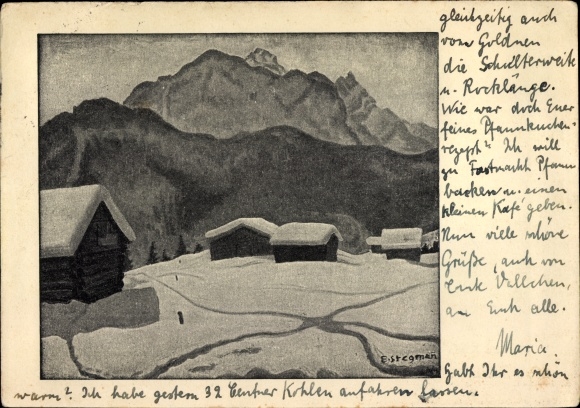 gleichzeitig auch
vom Goldnen
die Schulterweite
u. Rocklänge.
Wie war doch Euer
feines Pfannkuchen-
rezept? Ich will
zu Fastnacht Pfann
backen u. einen
kleinen Kafé geben.
Nun viele schöne
Grüße, auch von
an Euch alle.
Maria.
Gabt Ihr es schön
warm? Ich habe gestern 32 Centner Kohlen anfahren lassen.
E. Stegman